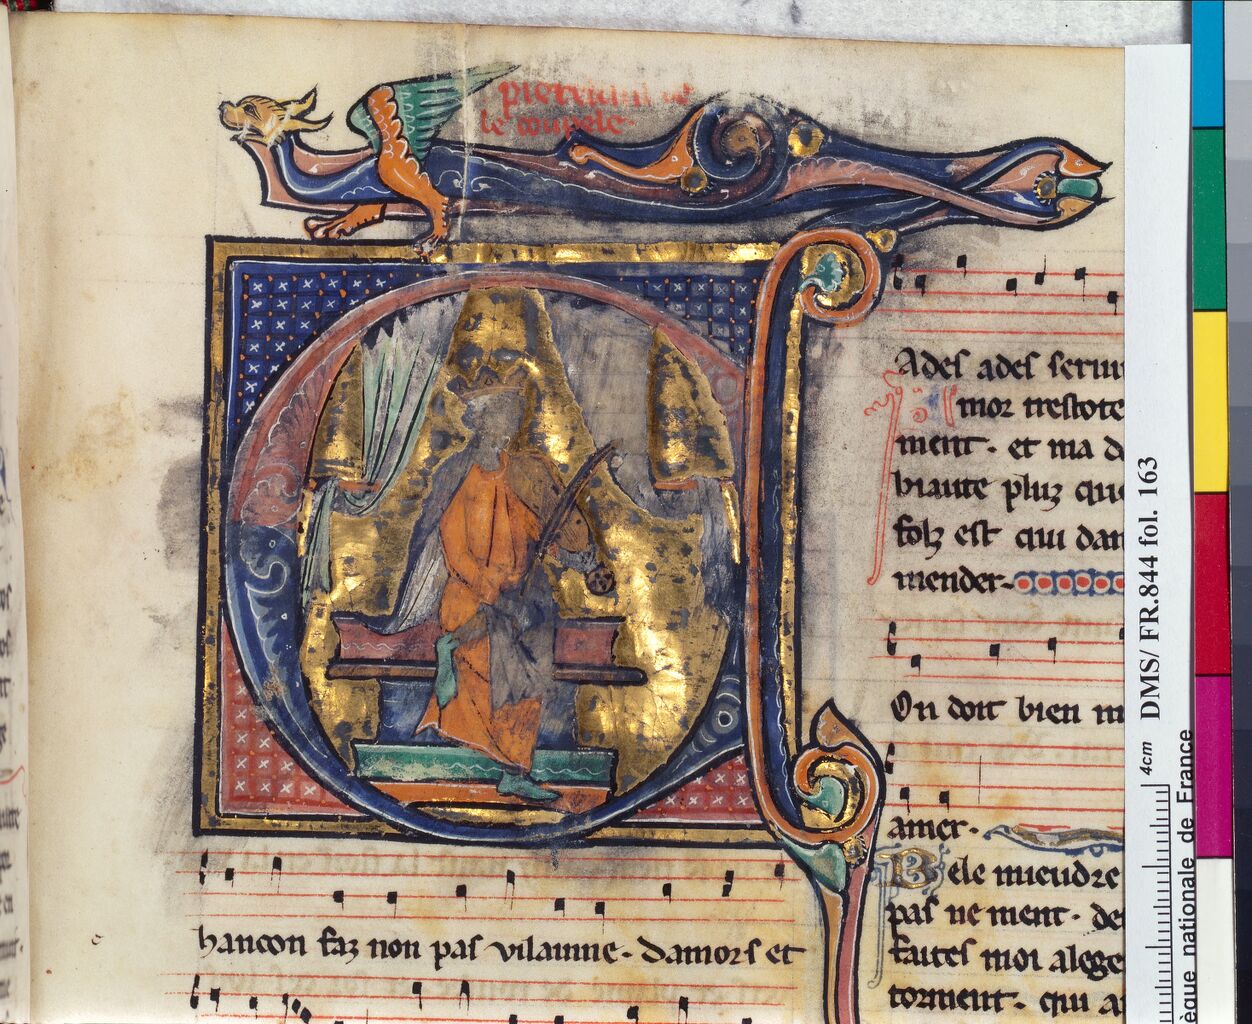 le coupele.
hancon faz non pas vilainne. damors et
Ades ades seruir
mor trestote
ment. et ma d
biaute pluz que
folz est qui dan
mender.
On doit bien m
amer.
Bele mieudre
pas ne ment. de
faites moi alege
torment. qui a
4cm DMS/ FR.844 fol. 163
èque nationale de France